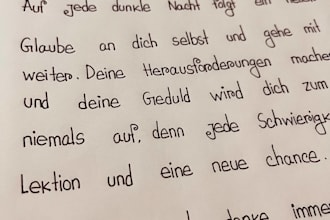 Auf jede dunkle Nacht folgt ein
Glaube an dich selbst und gehe mit
weiter. Deine Herausforderungen mache
und deine Geduld wird dich zum
niemals auf, denn jede Schwierigk
Lektion und eine neue chance.
denke imme